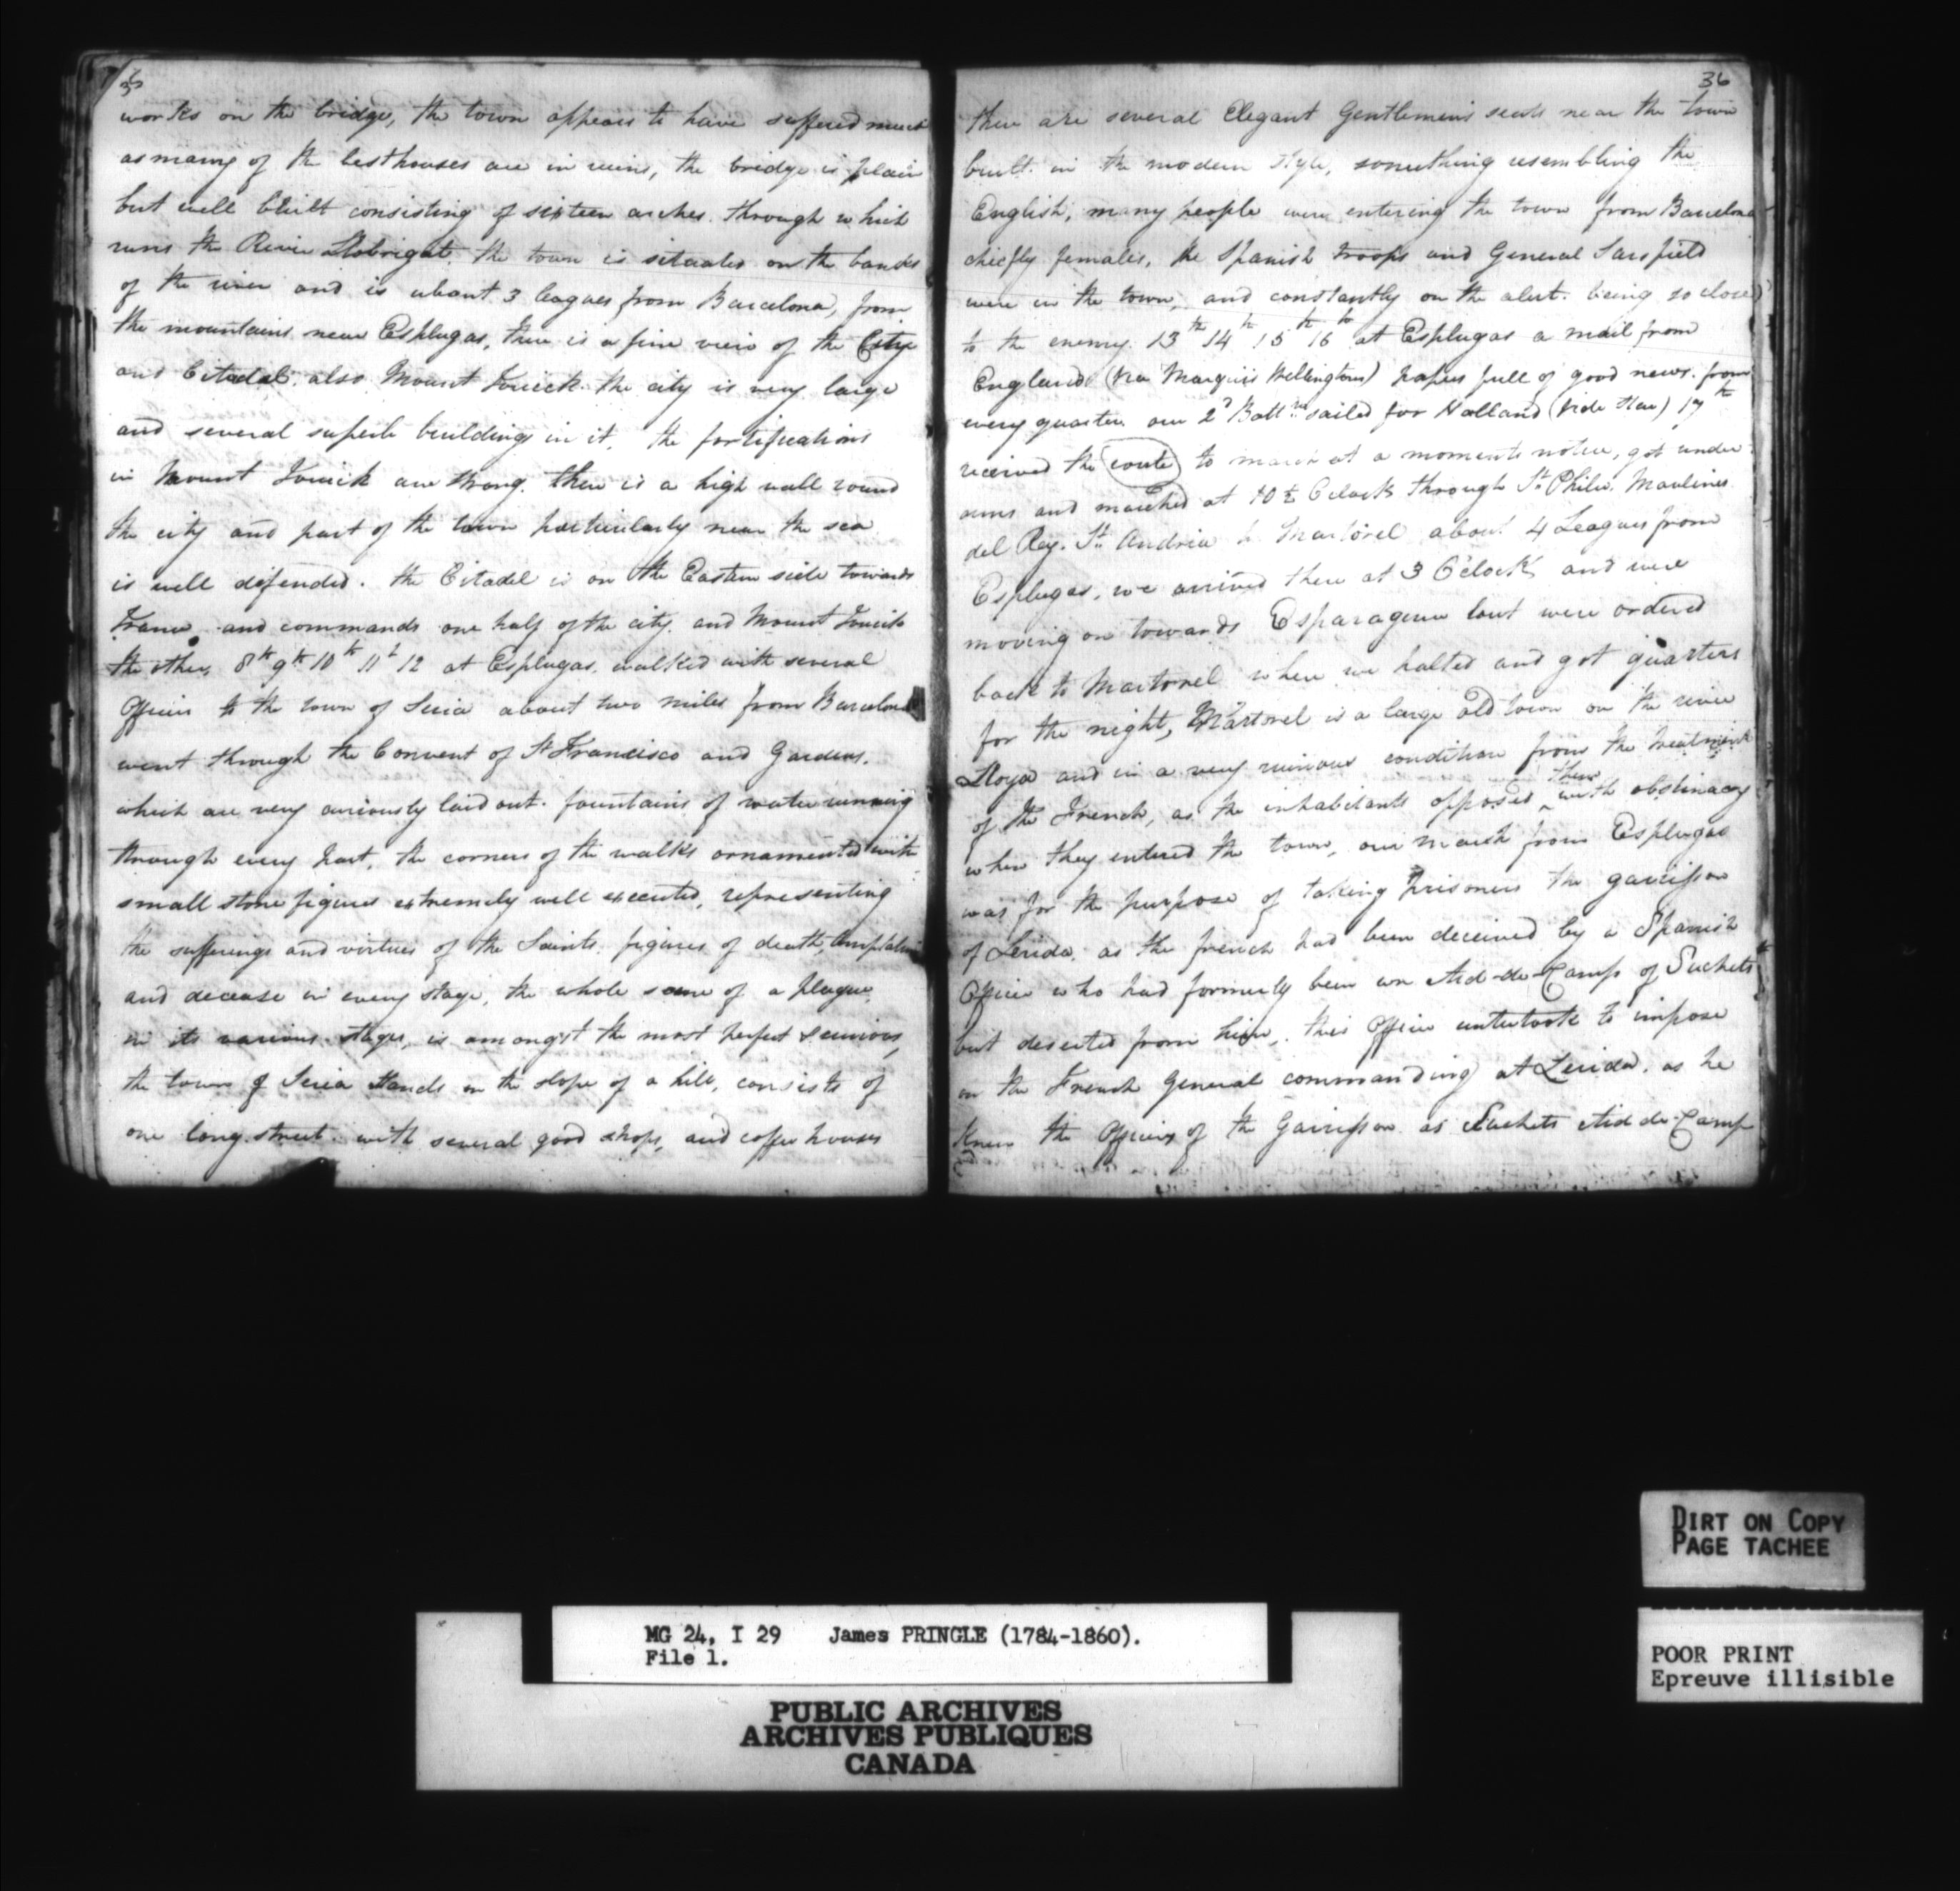 35
works on the bridge, the town appears to have suffered much
as many of the best houses are in ruins, the bridge is plain
but well built consisting of sixteen arches through which
runs the River Llobrigat. the town is situated on the banks
of the river and is about 3 leagues from Barcelona, from
the mountains near Esplugas, there is a fine view of the City
and Citadel, also Mount Jouick the city is very large
and several superb buildings in it, the fortifications
in Mount Jouick are strong. there is a high wall round
the city and part of the town particularly near the sea
is well defended. the Citadel is on the Eastern side towards
France and commands one half of the city and Mount Jouick
the other, 8th 9th 10th 11th 12 at Esplugas, walked with several
Officers to the town of Seria about two miles from Barcelona
went through the Convent of St Francisco and Gardens,
which are very curiously laid out. fountains of water running
through every part, the corners of the walks ornamented with
small stone figures extremely well executed, representing
the sufferings and virtues of the Saints, figures of death,
and decease in every stage, the whole scene of a plague,
in its various stages, is amongst the most perfect & curious,
the town of Seria stands on the slope of a hill, consists of
one long street with several good shops, and coffee houses
36
there are several Elegant Gentlemens seats near the town
built in the modern style, something resembling the
English, many people were entering the town from Barcelona
chiefly females, the Spanish troops and General Sarsfield
were in the town, and constantly on the alert being so close
to the enemy 13th 14th 15th 16th at Esplugas a mail from
England (via Marquis Wellington) papers full of good news from
every quarter our 2d Battn sailed for Holland (vide ) 17th
received the route to march at a moments notice, got under
arms and marched at 10½ O'Clock through St Philio, Moulines
del Rey, St Andria to Martorel about 4 Leagues from
Esplugas, we arrived there at 3 O'Clock and were
moving on towards Esparagera but were ordered
back to Martorel where we halted and got quarters
for the night, Martorel is a large old town on the river
Lloya and in a very ruinous condition from the treatment
of the French, as the inhabitants opposed them with obstinacy
when they entered the town, our march from Esplugas
was for the purpose of taking prisoners the garrison
of Lerida, as the french had been deceived by a Spanish
Officer who had formerly been an Aid-de-Camp of Suchets
but deserted from him, this Officer untertook to impose
on the French General commanding at Lerida, as he
knew the Officers of the Garrison as Suchets Aid de Camp
DIRT ON COPY
PAGE TACHEE
POOR PRINT
Epreuve illisible
MG 24, I 29 James PRINGLE (1784-1860).
File 1.
PUBLIC ARCHIVES
ARCHIVES PUBLIQUES
CANADA